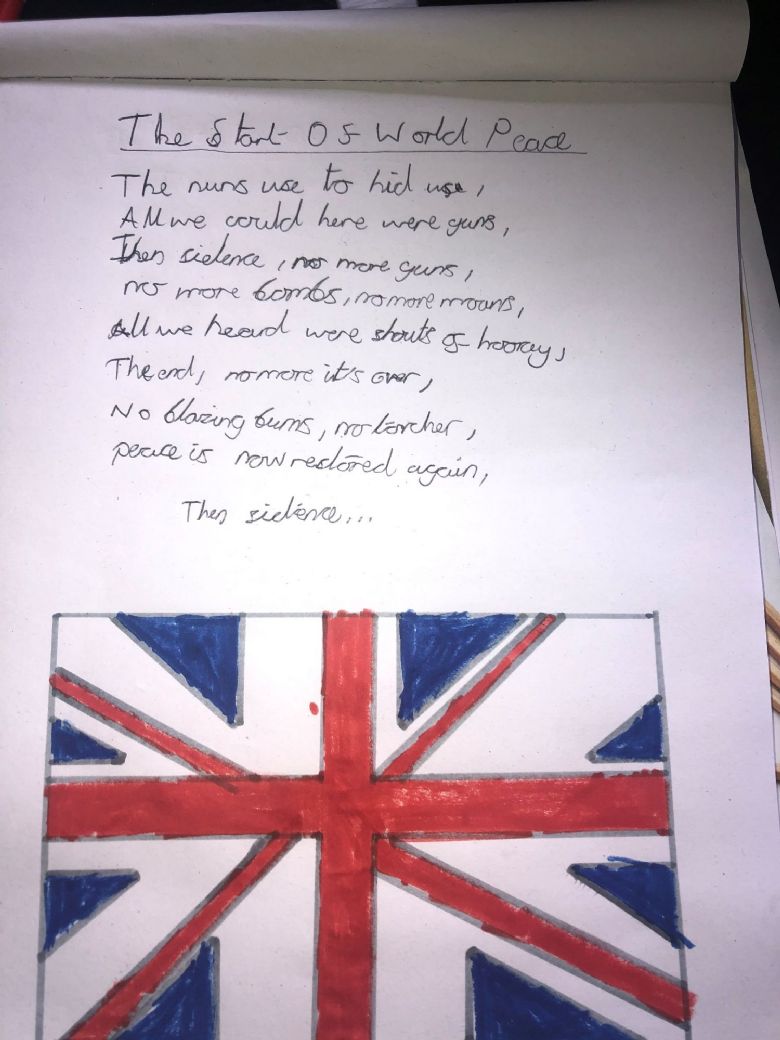 The Start Of World Peace
The nuns use to hid use,
All we could here were guns,
Then sielence, no more guns,
no more bombs, no more moans,
All we heard were shouts of hooray,
The end, no more it's over,
No blazing burns, no torcher,
peace is now restored again,
Then sielence...